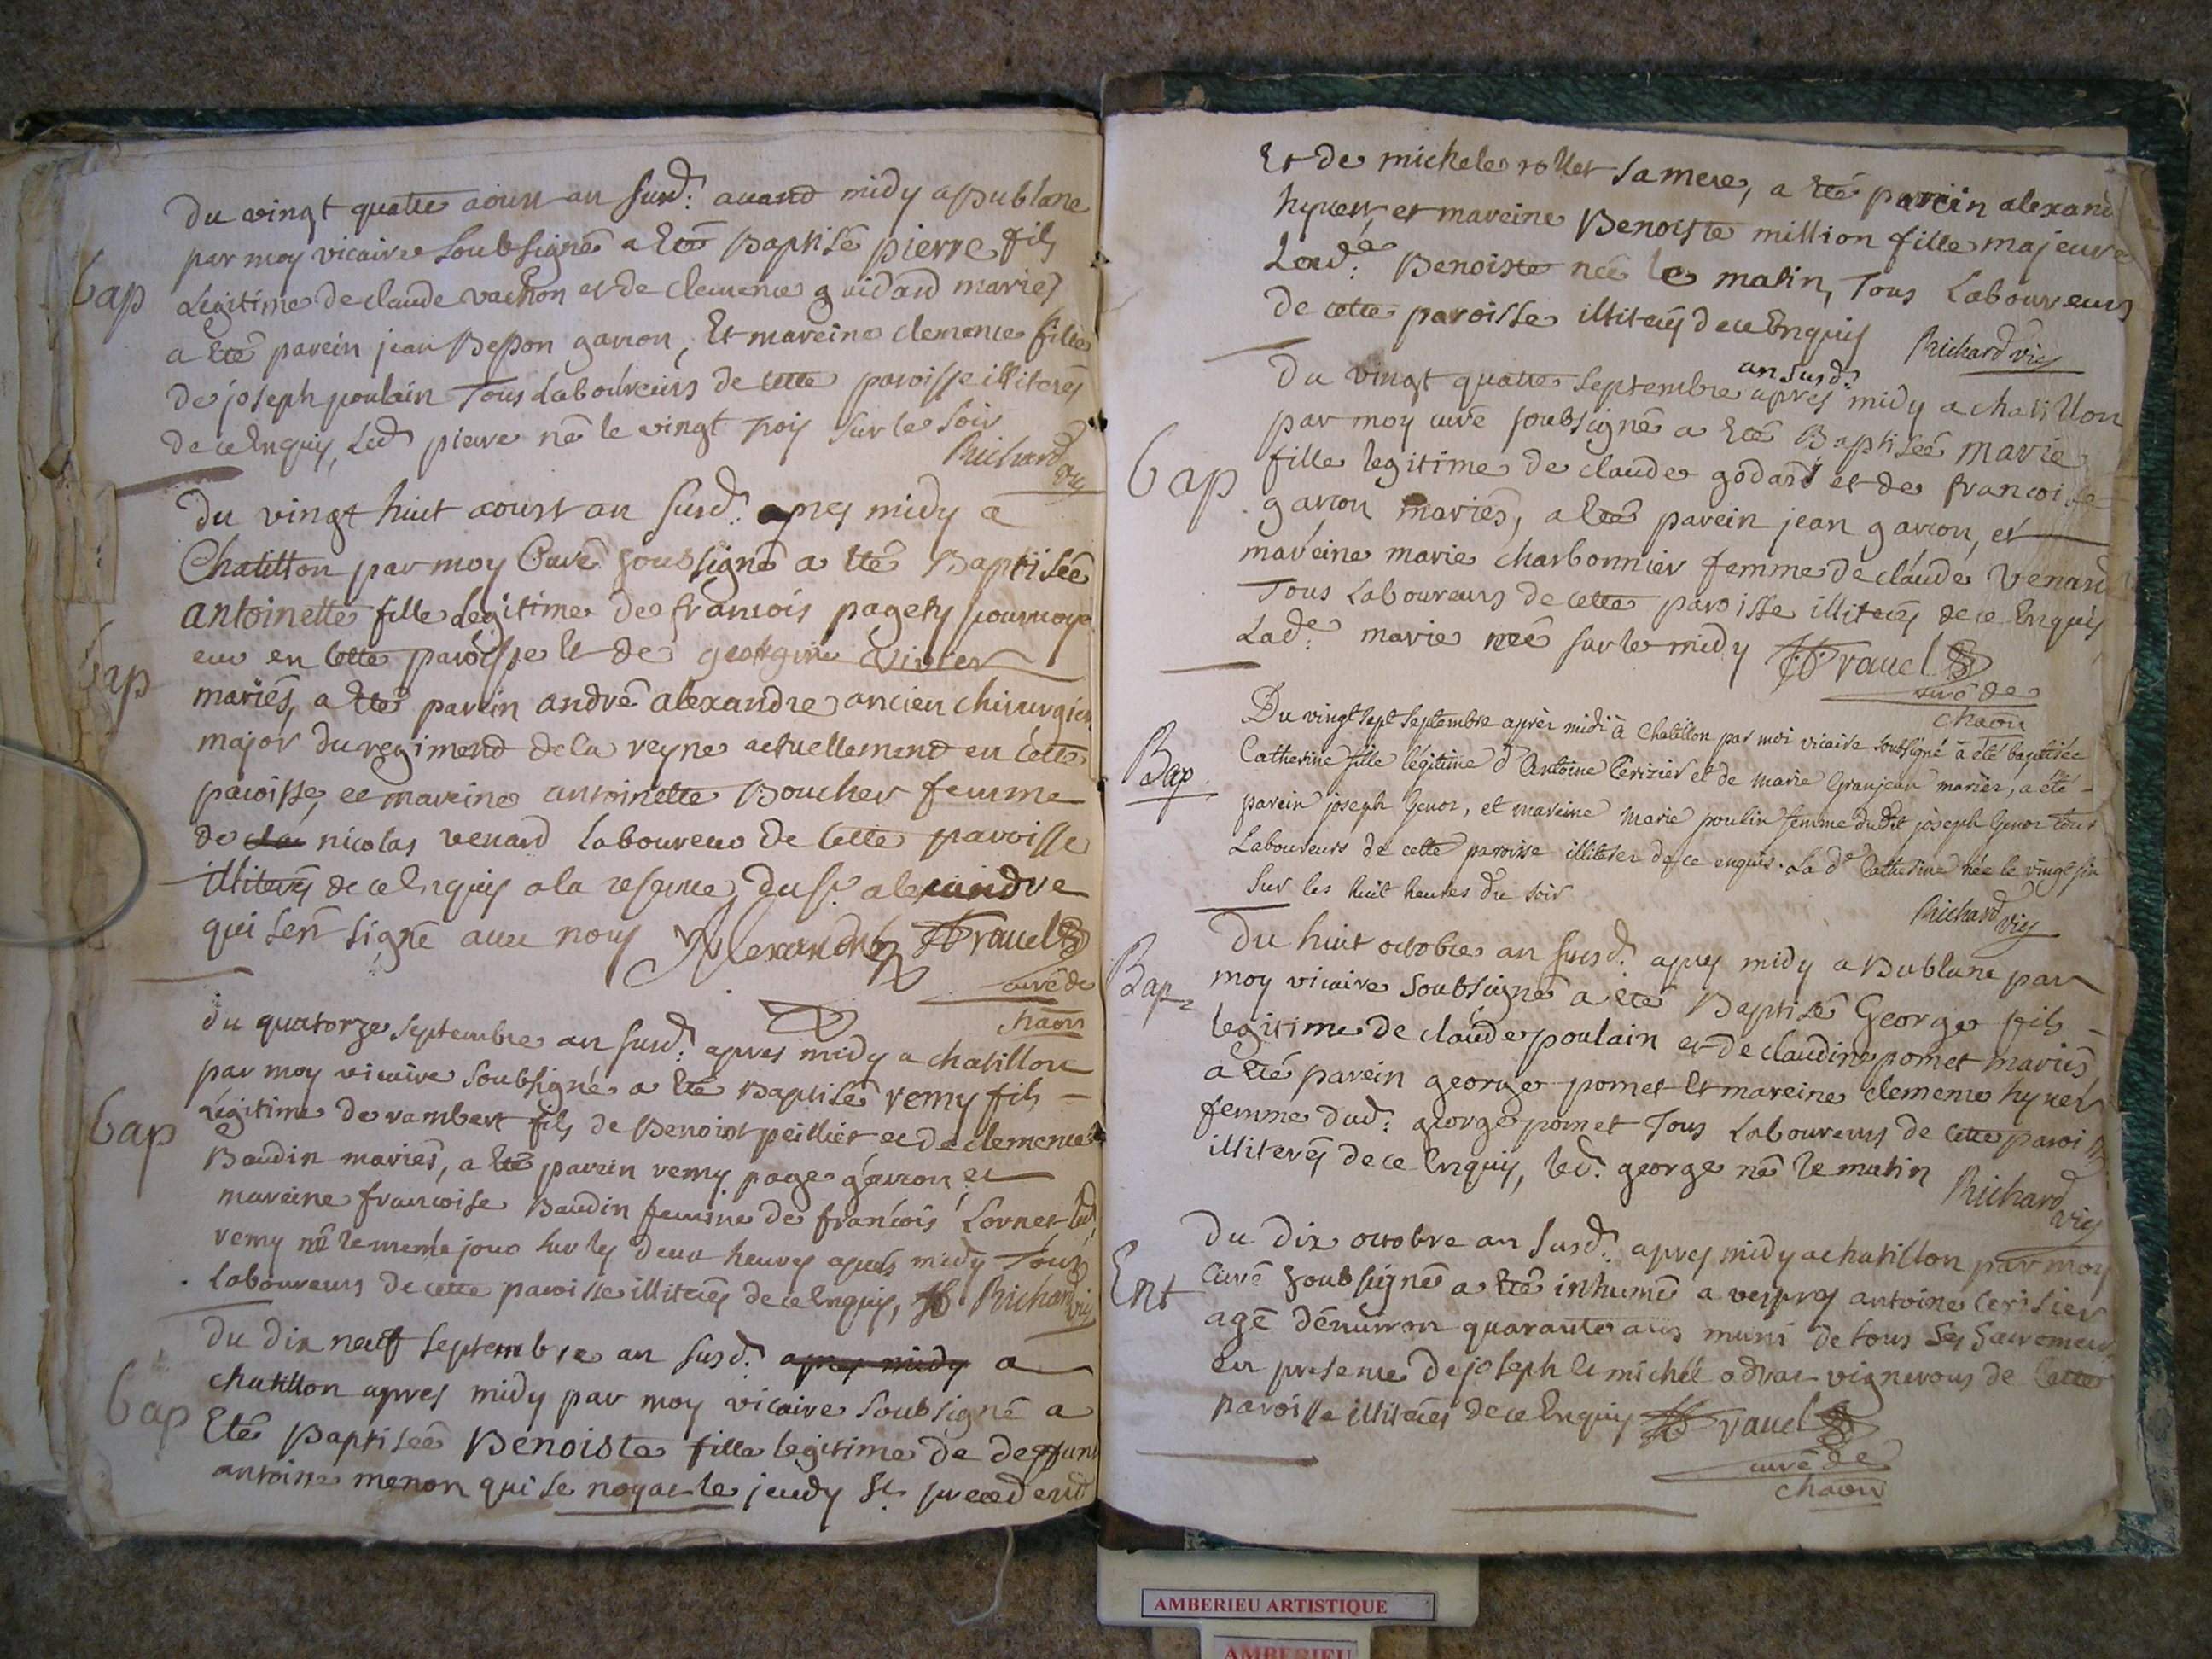 bap
du vingt quatre aoust an susd. avand midy a publane
par moy vicaire soubsigné a eté Baptisé pierre fils
Legitime de claude vachon et de clemence guidard mariez
a eté parein jean Bepon garcon, Et mareine clemence fille
de joseph poulain Tous Laboureurs de cette paroisse illiterés
de ce Enquis, Led. pierre né le vingt trois sur le soir
Richard vic
bap
Du vingt huit aoust an susd. apres midy a
Chatillon par moy Curé soussigné a eté Baptisée
antoinette fille Legitime de francois pagety pourvoye
eur en cette paroisse Et de georgine vivier
mariés, a eté parein andré alexandre ancien chirurgien
major du regimend de la reyne actuellement en cette
paroisse, et mareine antoinette Boucher femme
de nicolas venard laboureur de Cette paroisse
illiterés de ce Enquis a la reserve du sr. alexandre
qui s'est signé avec nous Alexandre Travel
curé de
chaon
bap
du quatorze septembre an susd. apres midy a chatillon
par moy vicaire soubsigné a eté Baptisé remy fils
Legitime de rambert fils de Benoist peillier et de clemence
Baudin mariés, a eté parein remy page garcon et
mareine francoise Baudin femme de francois Cornet led.
remy né le meme jour sur les deux heures apres midy Tous
Laboureurs de cette paroisse illiterés de ce Enquis, Richard vic
bap
Du dix neuf septembre an susd. apres midy a
chatillon apres midy par moy vicaire soubsigné a
Eté Baptisée Benoiste fille legitime de deffunt
antoine menon qui se noya le jeudy st. precedend
Et de michele rollet sa mere, a eté parein alexand
hyvert et mareine Benoiste million fille majeure
Lad.e Benoiste née le matin, Tous Laboureurs
de cette paroisse illiterés de ce Enquis Richard vic
bap
an susd.
Du vingt quatre septembre apres midy a chatillon
par moy curé soubsigné a eté Baptisée marie
fille legitime de claude godard et de francoise
garcon mariés, a eté parein jean garcon, et
mareine marie charbonnier femme de claude venard
Tous Laboureurs de cette paroisse illiterés de ce Enquis
Lad.e marie née sur le midy Travel
curé de
chaon
Bap
Du vingt sept septembre après midi à Chatillon par moi vicaire soubsigné a été baptisée
Catherine fille légitime d'Antoine Cerizier et de Marie Granjean mariés, a été
parein joseph Genor, et mareine Marie poulin femme dudit joseph Genor tous
Laboureurs de cette paroisse illiteres de ce enquis. La d.e Catherine née le vingt six
sur les huit heures du soir
Richard vic
Bap
Du huit octobre an susd. apres midy a publane par
moy vicaire soubsigné a eté Baptisé George fils
legitime de claude poulain et de claudine pomet mariés
a eté parein george pomet Et mareine clemence hyvert
femme dud. george pomet Tous Laboureurs de cette paroisse
illiterés de ce Enquis, led. george né le matin
Richard vic
Ent
Du Dix octobre an susd. apres midy a chatillon par moy
Curé soubsigné a eté inhumé a vespres antoine Cerisier
agé d'environ quarante ans muni de tous ses sacremens
en presence de joseph et michel vignerons de Cette
paroisse illiterés de ce Enquis Travel
curé de
chaon
AMBERIEU ARTISTIQUE
AMBERIEU